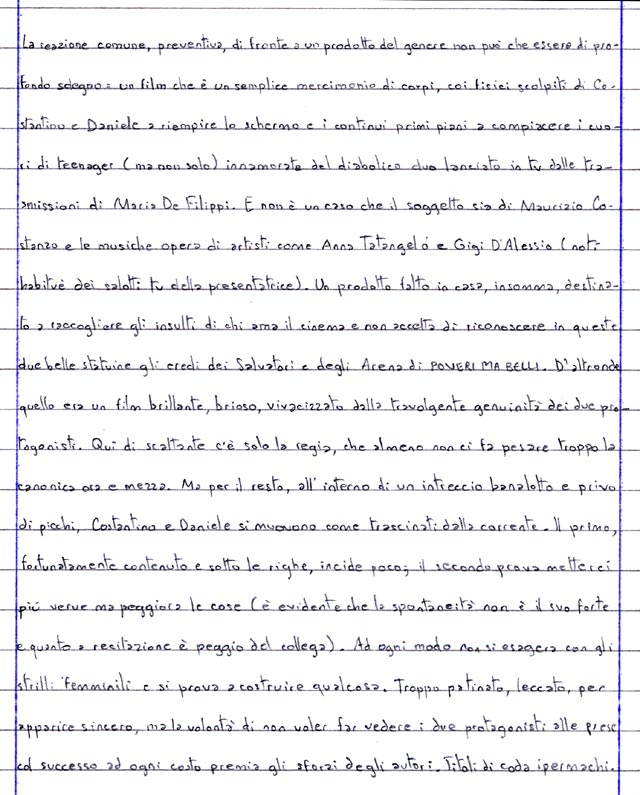 La reazione comune, preventiva, di fronte a un prodotto del genere non può che essere di pro-
fondo sdegno: un film che è un semplice mercimonio di corpi, coi fisici scolpiti di Co-
stantino e Daniele a riempire lo schermo e i continui primi piani a compiacere i cuo-
ri di teenager (ma non solo) innamorate del diabolico duo lanciato in tv dalle tra-
smissioni di Maria De Filippi. E non è un caso che il soggetto sia di Maurizio Co-
stanzo e le musiche opera di artisti come Anna Tatangelo e Gigi D'Alessio (noti
habituè dei salotti tv della presentatrice). Un prodotto fatto in casa, insomma, destina-
to a raccogliere gli insulti di chi ama il cinema e non accetta di riconoscere in queste
due belle statuine gli eredi dei Salvatori e degli Arena di POVERI MA BELLI. D'altronde
quello era un film brillante, brioso, vivacizzato dalla travolgente genuinità dei due pro-
tagonisti. Qui di scattante c'è solo la regia, che almeno non ci fa pesare troppo la
canonica ora e mezza. Ma per il resto, all'interno di un intreccio banalotto e privo
di picchi, Costantino e Daniele si muovono come trascinati dalla corrente. Il primo,
fortunatamente contenuto e sotto le righe, incide poco; il secondo prova metterci
più verve ma peggiora le cose (è evidente che la spontaneità non è il suo forte
e quanto a recitazione è peggio del collega). Ad ogni modo non si esagera con gli
strilli femminili e si prova a costruire qualcosa. Troppo patinato, leccato, per
apparire sincero, ma la volontà di non voler far vedere i due protagonisti alle prese
col successo ad ogni costo premia gli sforzi degli autori. Titoli di coda ipermachi.